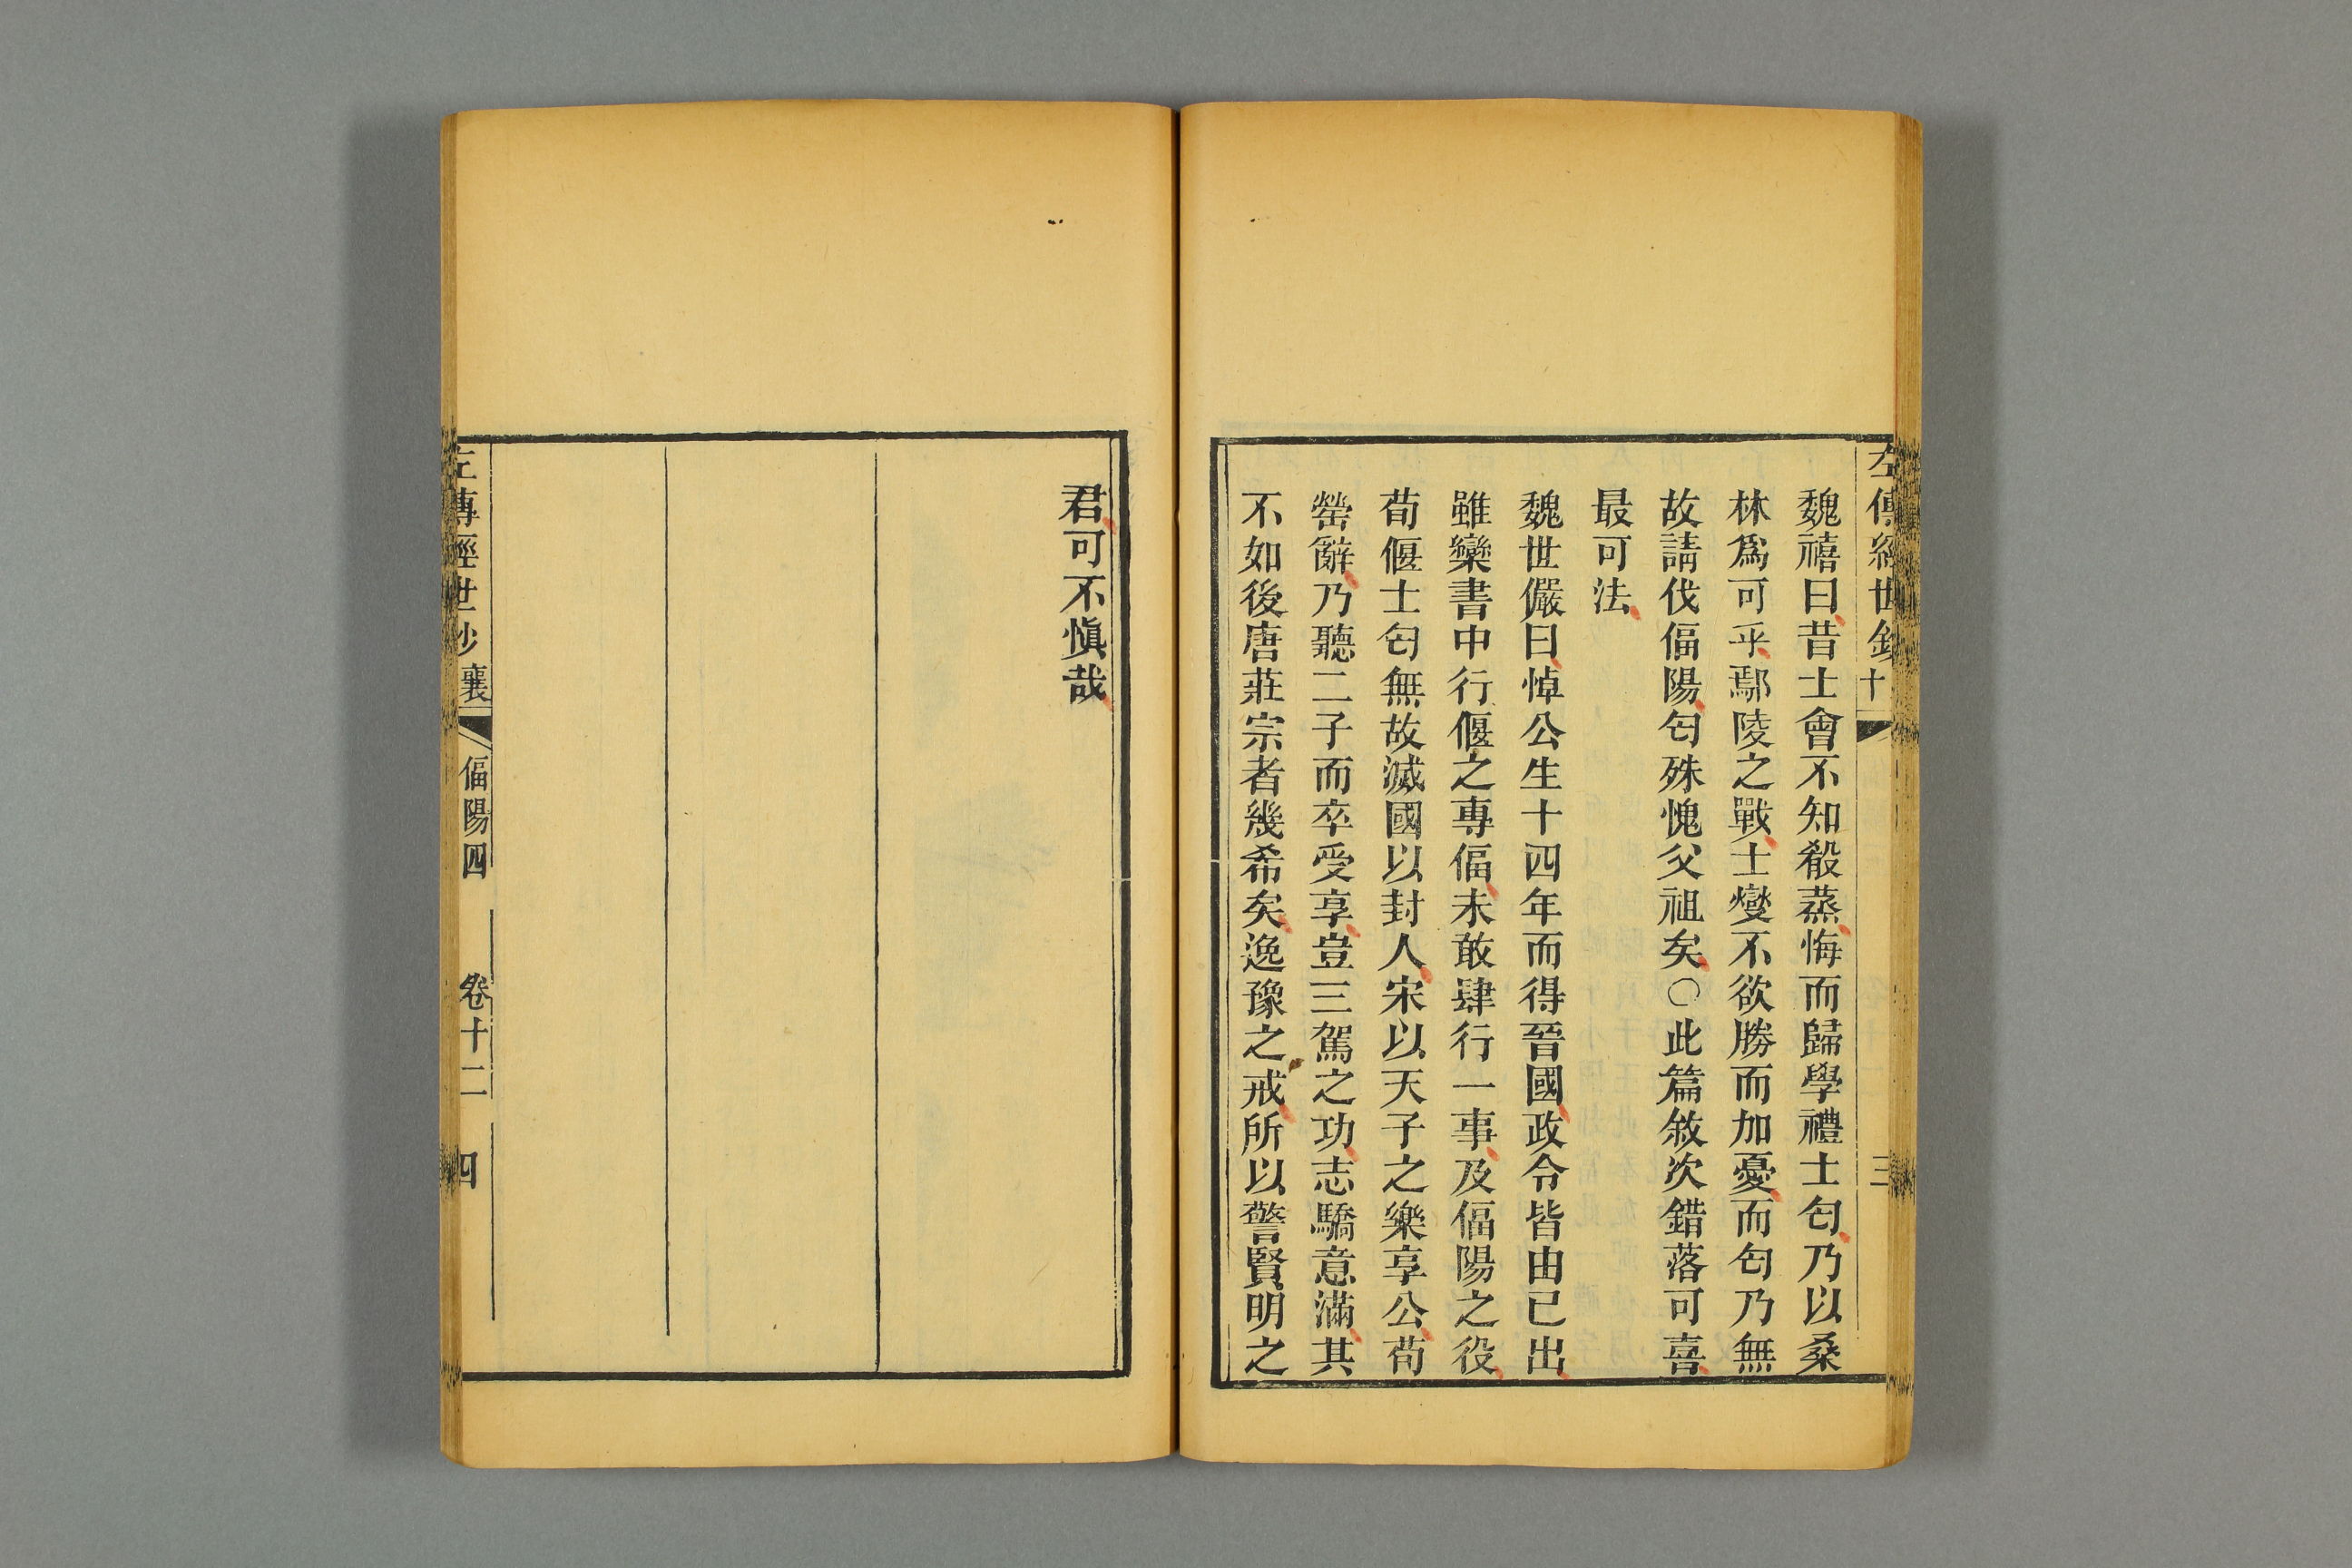 左傳經世鈔十
三
魏禧曰昔士會不知殽蒸悔而歸學禮士匄乃以桑
林爲可乎鄢陵之戰士燮不欲勝而加憂而匄乃無
故請伐偪陽匄殊愧父祖矣○此篇敘次錯落可喜
最可法
魏世儼曰悼公生十四年而得晉國政令皆由已出
雖欒書中行偃之專偪未敢肆行一事及偪陽之役
荀偃士匄無故滅國以封人宋以天子之樂享公荀
罃辭乃聽二子而卒受享豈三駕之功志驕意滿其
不如後唐莊宗者幾希矣逸豫之戒所以警賢明之
君可不愼哉
左傳經世鈔 襄 偪陽四 卷十二 四